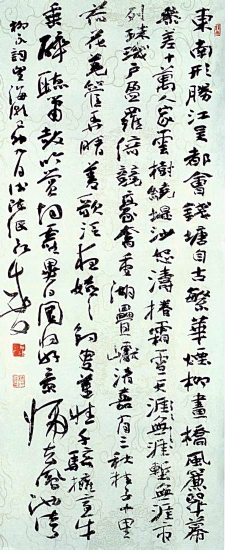 東南形勝江吳都會錢塘自古繁華煙柳畫橋風簾翠幕
參差十萬人家雲樹繞堤沙怒濤捲霜雪天涯無涯塹無涯市
列珠璣戶盈羅綺競豪奢重湖疊巘清嘉有三秋桂子十里
荷花羌管弄晴菱歌泛夜嬉嬉釣叟蓮娃千騎擁高牙
乘醉聽簫鼓吟賞煙霞異日圖將好景歸去鳳池誇
柳永詞望海潮